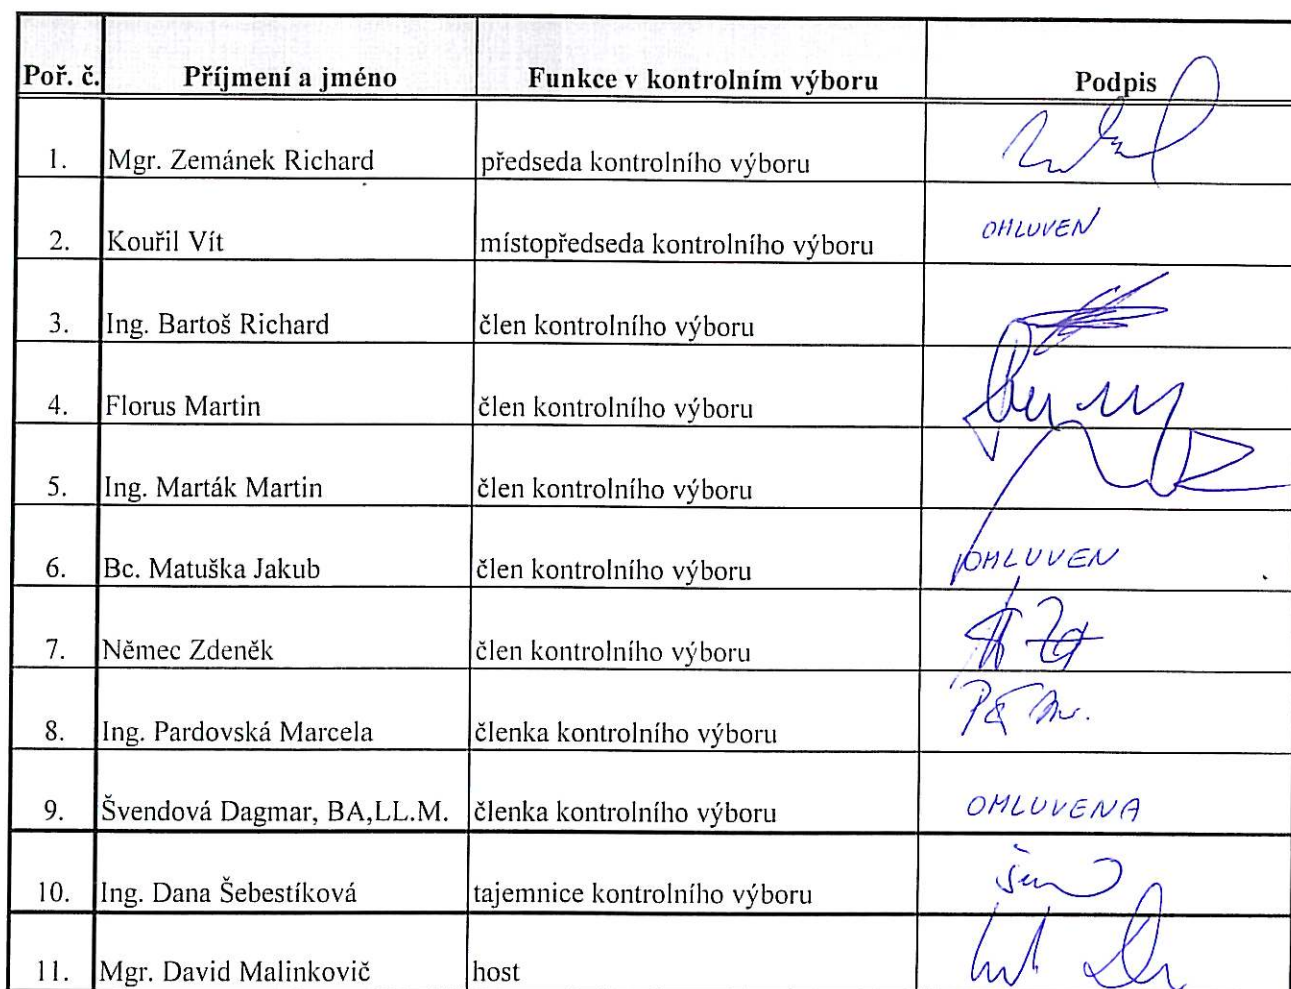 Poř. č. Příjmení a jméno Funkce v kontrolním výboru Podpis
1. Mgr. Zemánek Richard předseda kontrolního výboru
2. Kouřil Vít místopředseda kontrolního výboru OMLUVEN
3. Ing. Bartoš Richard člen kontrolního výboru
4. Florus Martin člen kontrolního výboru
5. Ing. Marták Martin člen kontrolního výboru
6. Bc. Matuška Jakub člen kontrolního výboru OMLUVEN
7. Němec Zdeněk člen kontrolního výboru
8. Ing. Pardovská Marcela členka kontrolního výboru
9. Švendová Dagmar, BA,LL.M. členka kontrolního výboru OMLUVENA
10. Ing. Dana Šebestíková tajemnice kontrolního výboru
11. Mgr. David Malinkovič host